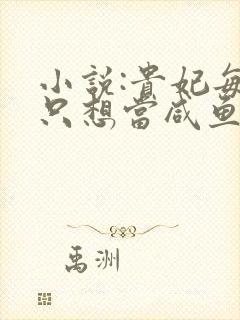 小說:貴妃每
只想當咸魚
禹洲